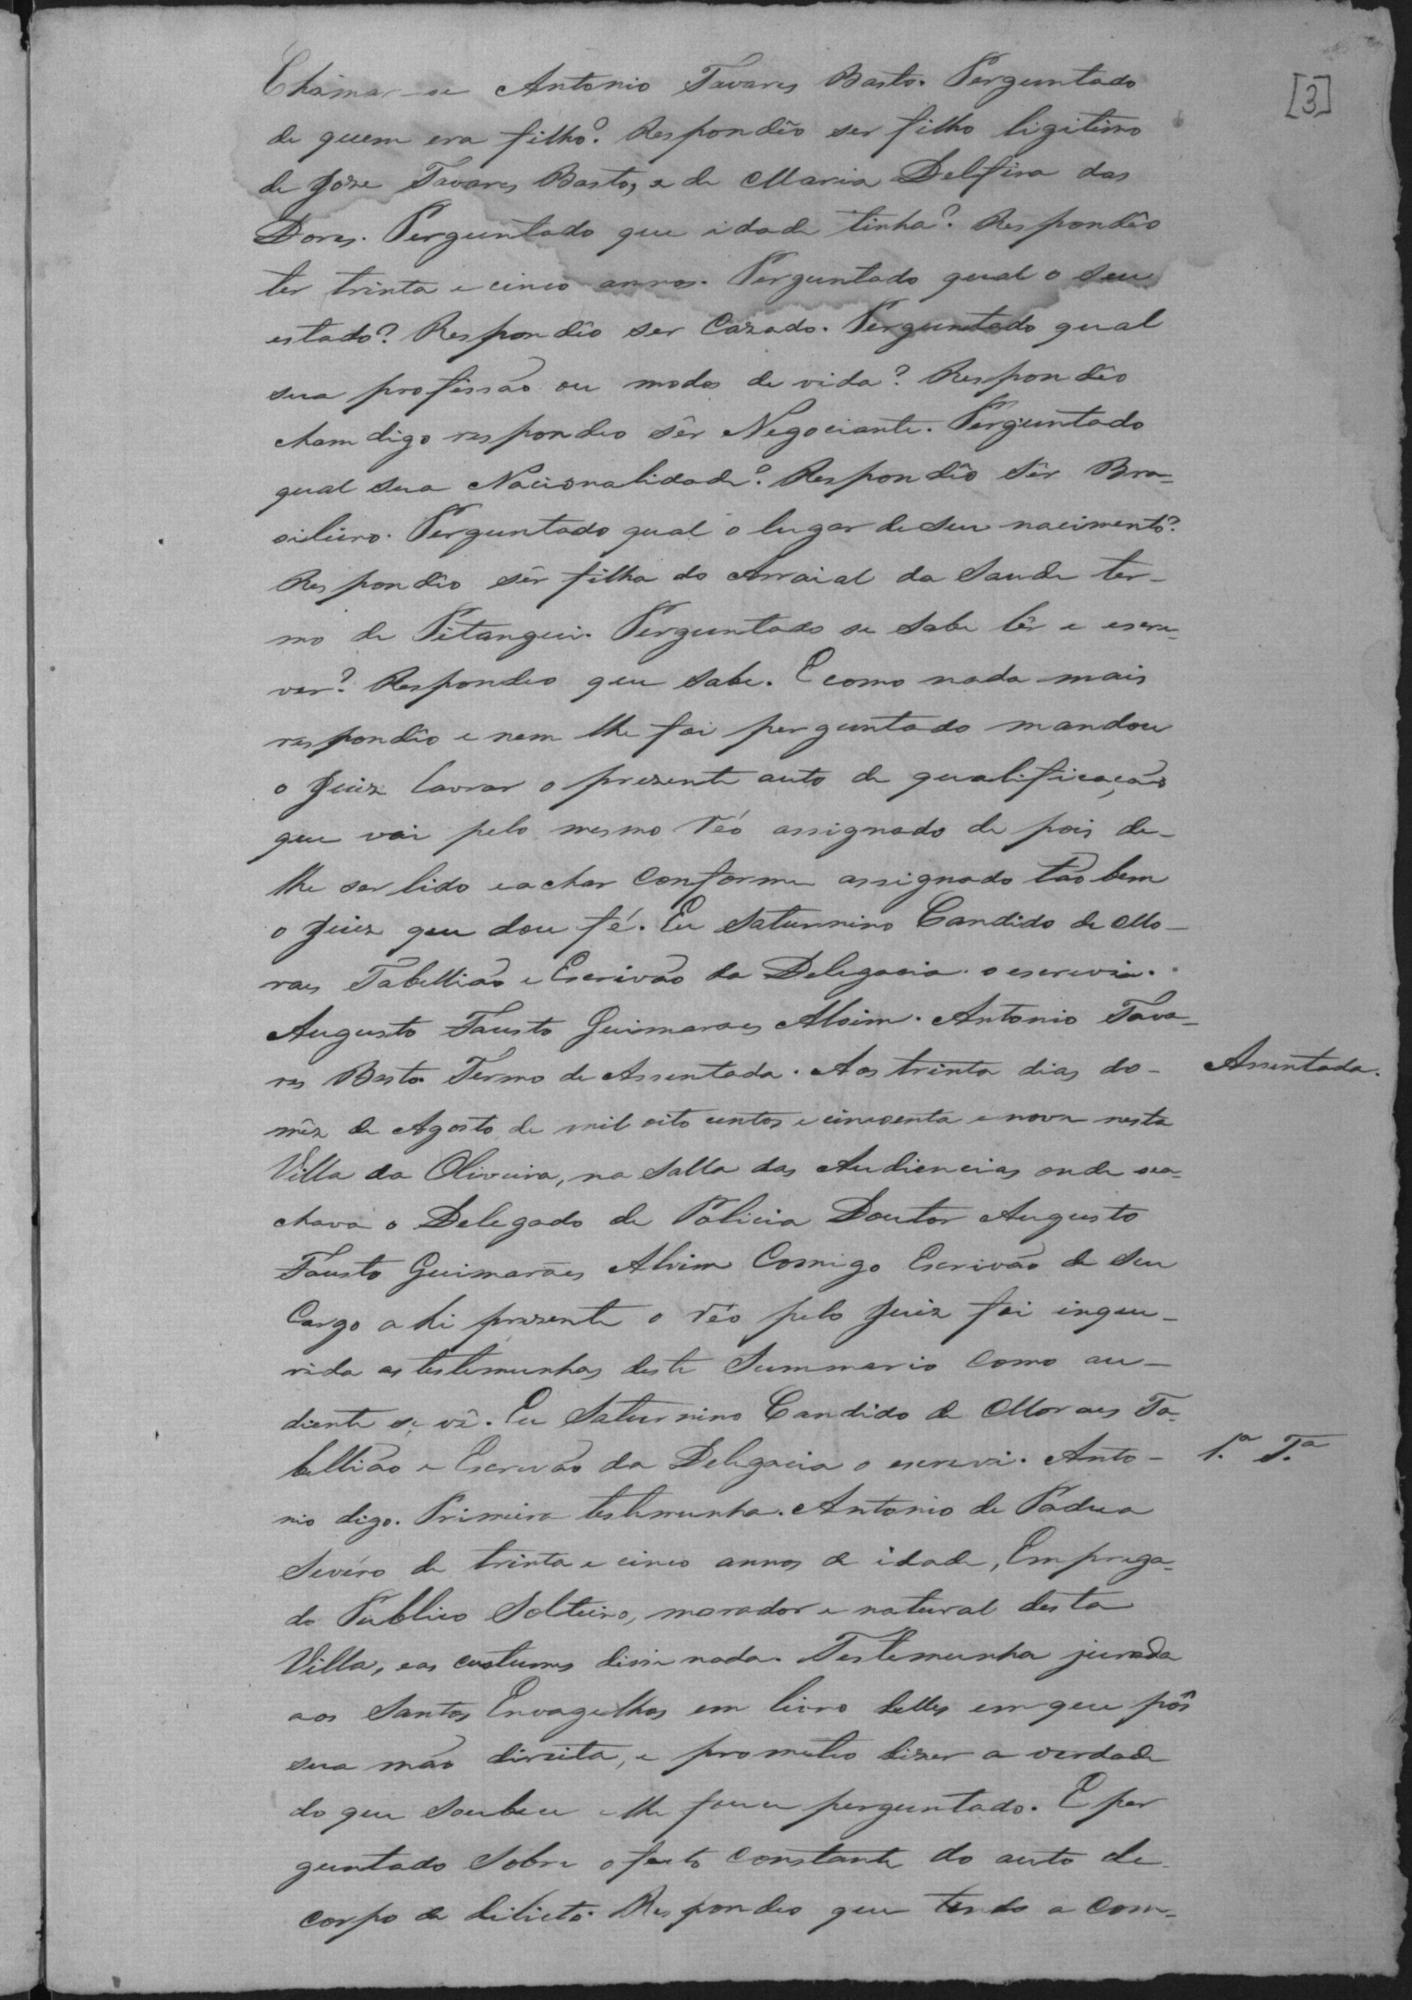 [3]
Chamar-se Antonio Tavares Basto. Perguntado
de quem era filho? Respondêo ser filho ligitimo
de Joze Tavares Bastos, e de Maria Delfina das
Dores. Perguntado que idade tinha? Respondêo
ter trinta e cinco annos. Perguntado qual o seu
estado? Respondêo ser Cazado. Perguntado qual
sua profissão ou modos de vida? Respondêo
cham digo respondeo sêr Negociante. Perguntado
qual sua Nacionalidade? Respondêo sêr Bra-
sileiro. Perguntado qual o lugar de seu nacimento?
Respondêo sêr filho do Arraial da Saude ter-
mo de Pitangui. Perguntado se sabe lêr e escre-
ver? Respondeo que sabe. E como nada mais
respondêo e nem lhe foi perguntado mandou
o Juiz lavrar o prezente auto de qualificação
que vai pelo mesmo réo assignado de pois de-
lhe ser lido e achar conforme assignado tão bem
o Juiz que dou fé. Eu Saturnino Candido de Mo-
raes Tabellião e Escrivão da Delegacia o escrevia.
Augusto Fausto Guimaraes Alvim. Antonio Tava-
res Basto. Termo de Assentada. Aos trinta dias do-
Assentada.
mêz de Agosto de mil oito centos e cincoenta e nove nesta
Villa da Oliveira, na Salla das Audiencias onde sea-
chava o Delegado de Policia Doutor Augusto
Fausto Guimarães Alvim Comigo Escrivão de seu
Cargo a hi prezente o réo pelo Juiz foi inque-
rida as testemunhas deste Summario como au-
diente se vê. Eu Saturnino Candido de Moraes Ta-
bellião e Escrivão da Delegacia o escrevi. Anto-
1.ª T.ª
nio digo. Primeira testemunha. Antonio de Padua
Sevéro de trinta e cinco annos de idade, Emprega-
do Publico Solteiro, morador e natural desta
Villa, e aos custumes disse nada. Testemunha jurada
aos Santos Envagelhos em livro delles em que pôs
sua mão direita, e prometeo dizer a verdade
do que soubeu e lhe fouce perguntado. E per
guntado sobre o facto constante do auto de
corpo de dilicto. Respondeo que tendo a com-